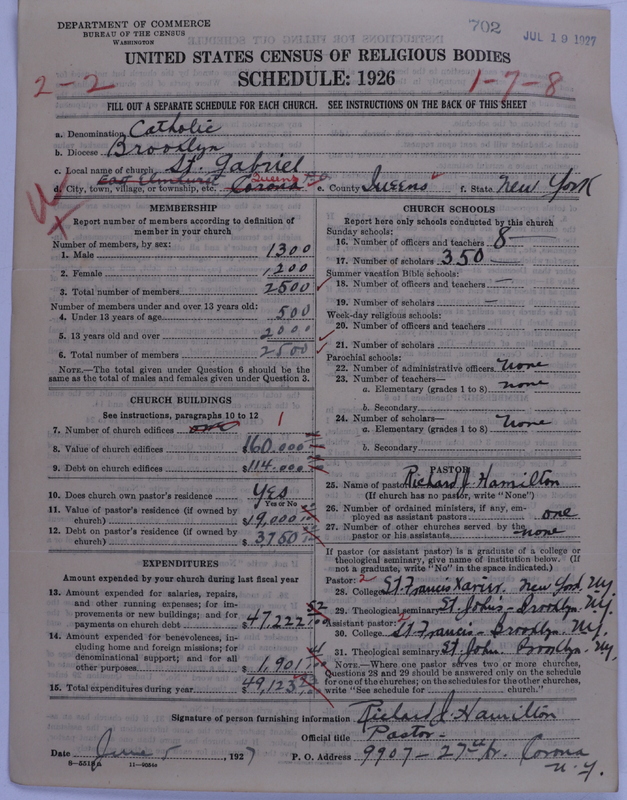 DEPARTMENT OF COMMERCE
BUREAU OF THE CENSUS
WASHINGTON
702
JUL 19 1927
UNITED STATES CENSUS OF RELIGIOUS BODIES
SCHEDULE: 1926
2-2
1-7-8
FILL OUT A SEPARATE SCHEDULE FOR EACH CHURCH. SEE INSTRUCTIONS ON THE BACK OF THIS SHEET
a. Denomination Catholic
b. Diocese Brooklyn
c. Local name of church St. Gabriel
d. City, town, village, or township, etc. East Elmhurst Corona Queens e. County Queens f. State New York
MEMBERSHIP
Report number of members according to definition of
member in your church
Number of members, by sex:
1. Male 1300
2. Female 1,200
3. Total number of members 2500
Number of members under and over 13 years old:
4. Under 13 years of age 500
5. 13 years old and over 2000
6. Total number of members 2500
NOTE.—The total given under Question 6 should be
same as the total of males and females given under Question 3.
CHURCH BUILDINGS
See instructions, paragraphs 10 to 12
7. Number of church edifices one 1
8. Value of church edifices $160.000
9. Debt on church edifices $114.000
10. Does church own pastor's residence Yes
Yes or No
11. Value of pastor's residence (if owned by
church) $9,000
12. Debt on pastor's residence (if owned by
church) $3750
EXPENDITURES
Amount expended by your church during last fiscal year
13. Amount expended for salaries, repairs,
and other running expenses; for im-
provements or new buildings; and for
payments on church debt $47.222 52/100
14. Amount expended for benevolences, in-
cluding home and foreign missions; for
denominational support; and for all
other purposes $1.901
15. Total expenditures during year $49,123
CHURCH SCHOOLS
Report here only schools conducted by this church
Sunday schools:
16. Number of officers and teachers 8
17. Number of scholars 350
Summer vacation Bible schools:
18. Number of officers and teachers —
19. Number of scholars —
Week-day religious schools:
20. Number of officers and teachers
21. Number of scholars
Parochial schools:
22. Number of administrative officers none
23. Number of teachers—
a. Elementary (grades 1 to 8) none
b. Secondary
24. Number of scholars—
a. Elementary (grades 1 to 8) none
b. Secondary
PASTOR
25. Name of pastor Richard J. Hamilton
(If church has no pastor, write "None")
26. Number of ordained ministers, if any, em-
ployed as assistant pastors one
27. Number of other churches served by the
pastor or his assistants none
If pastor (or assistant pastor) is a graduate of a college or
theological seminary, give name of institution below. (If
not a graduate, write "No" in the space indicated.)
Pastor: 2
28. College St. Francis Xavier. New York. N.Y.
29. Theological seminary St. Johns - Brooklyn. N.Y.
Assistant pastor: 2
30. College St. Francis - Brooklyn. N.Y.
31. Theological seminary St. John. Brooklyn. N.Y.
NOTE.—Where one pastor serves two or more churches,
Questions 28 and 29 should be answered only on the schedule
for one of the churches; on the schedules for the other churches,
write "See schedule for church."
Signature of person furnishing information Richard J. Hamilton
Official title Pastor -
Date June 5, 1927 P. O. Address 9907 - 27th Av. Corona
N.Y.